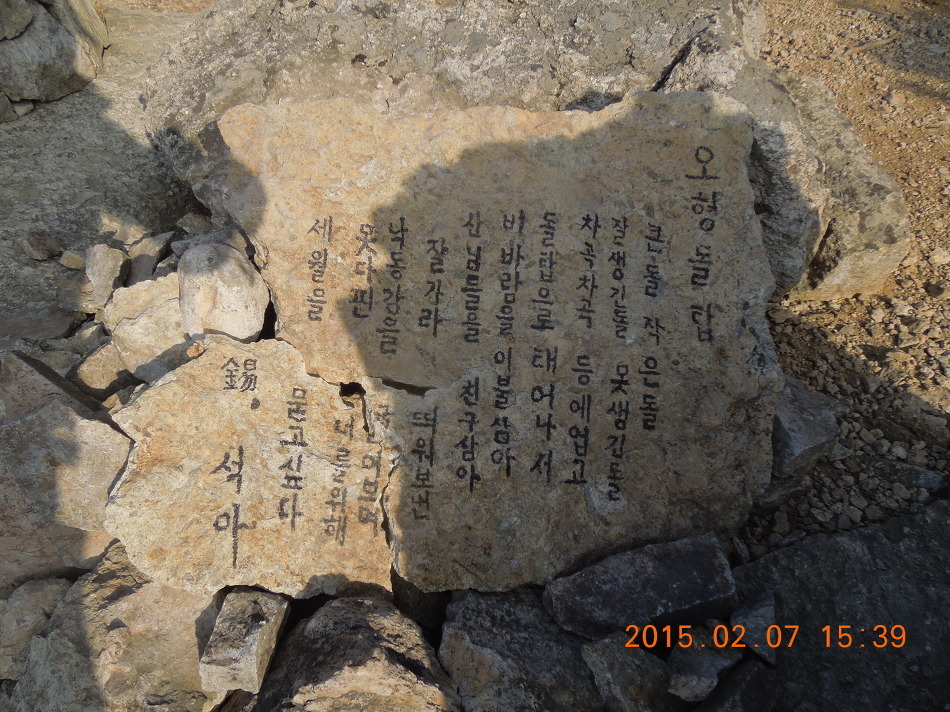 오행돌탑
큰돌 작은돌
잘생긴돌 못생긴돌
차곡차곡 등에업고
돌탑으로 태어나서
비바람을 이불삼아
산님들을 친구삼아
잘가라
낙동강을
못다핀
세월을
묻고싶다
錫. 석아
2015.02.07 15:39